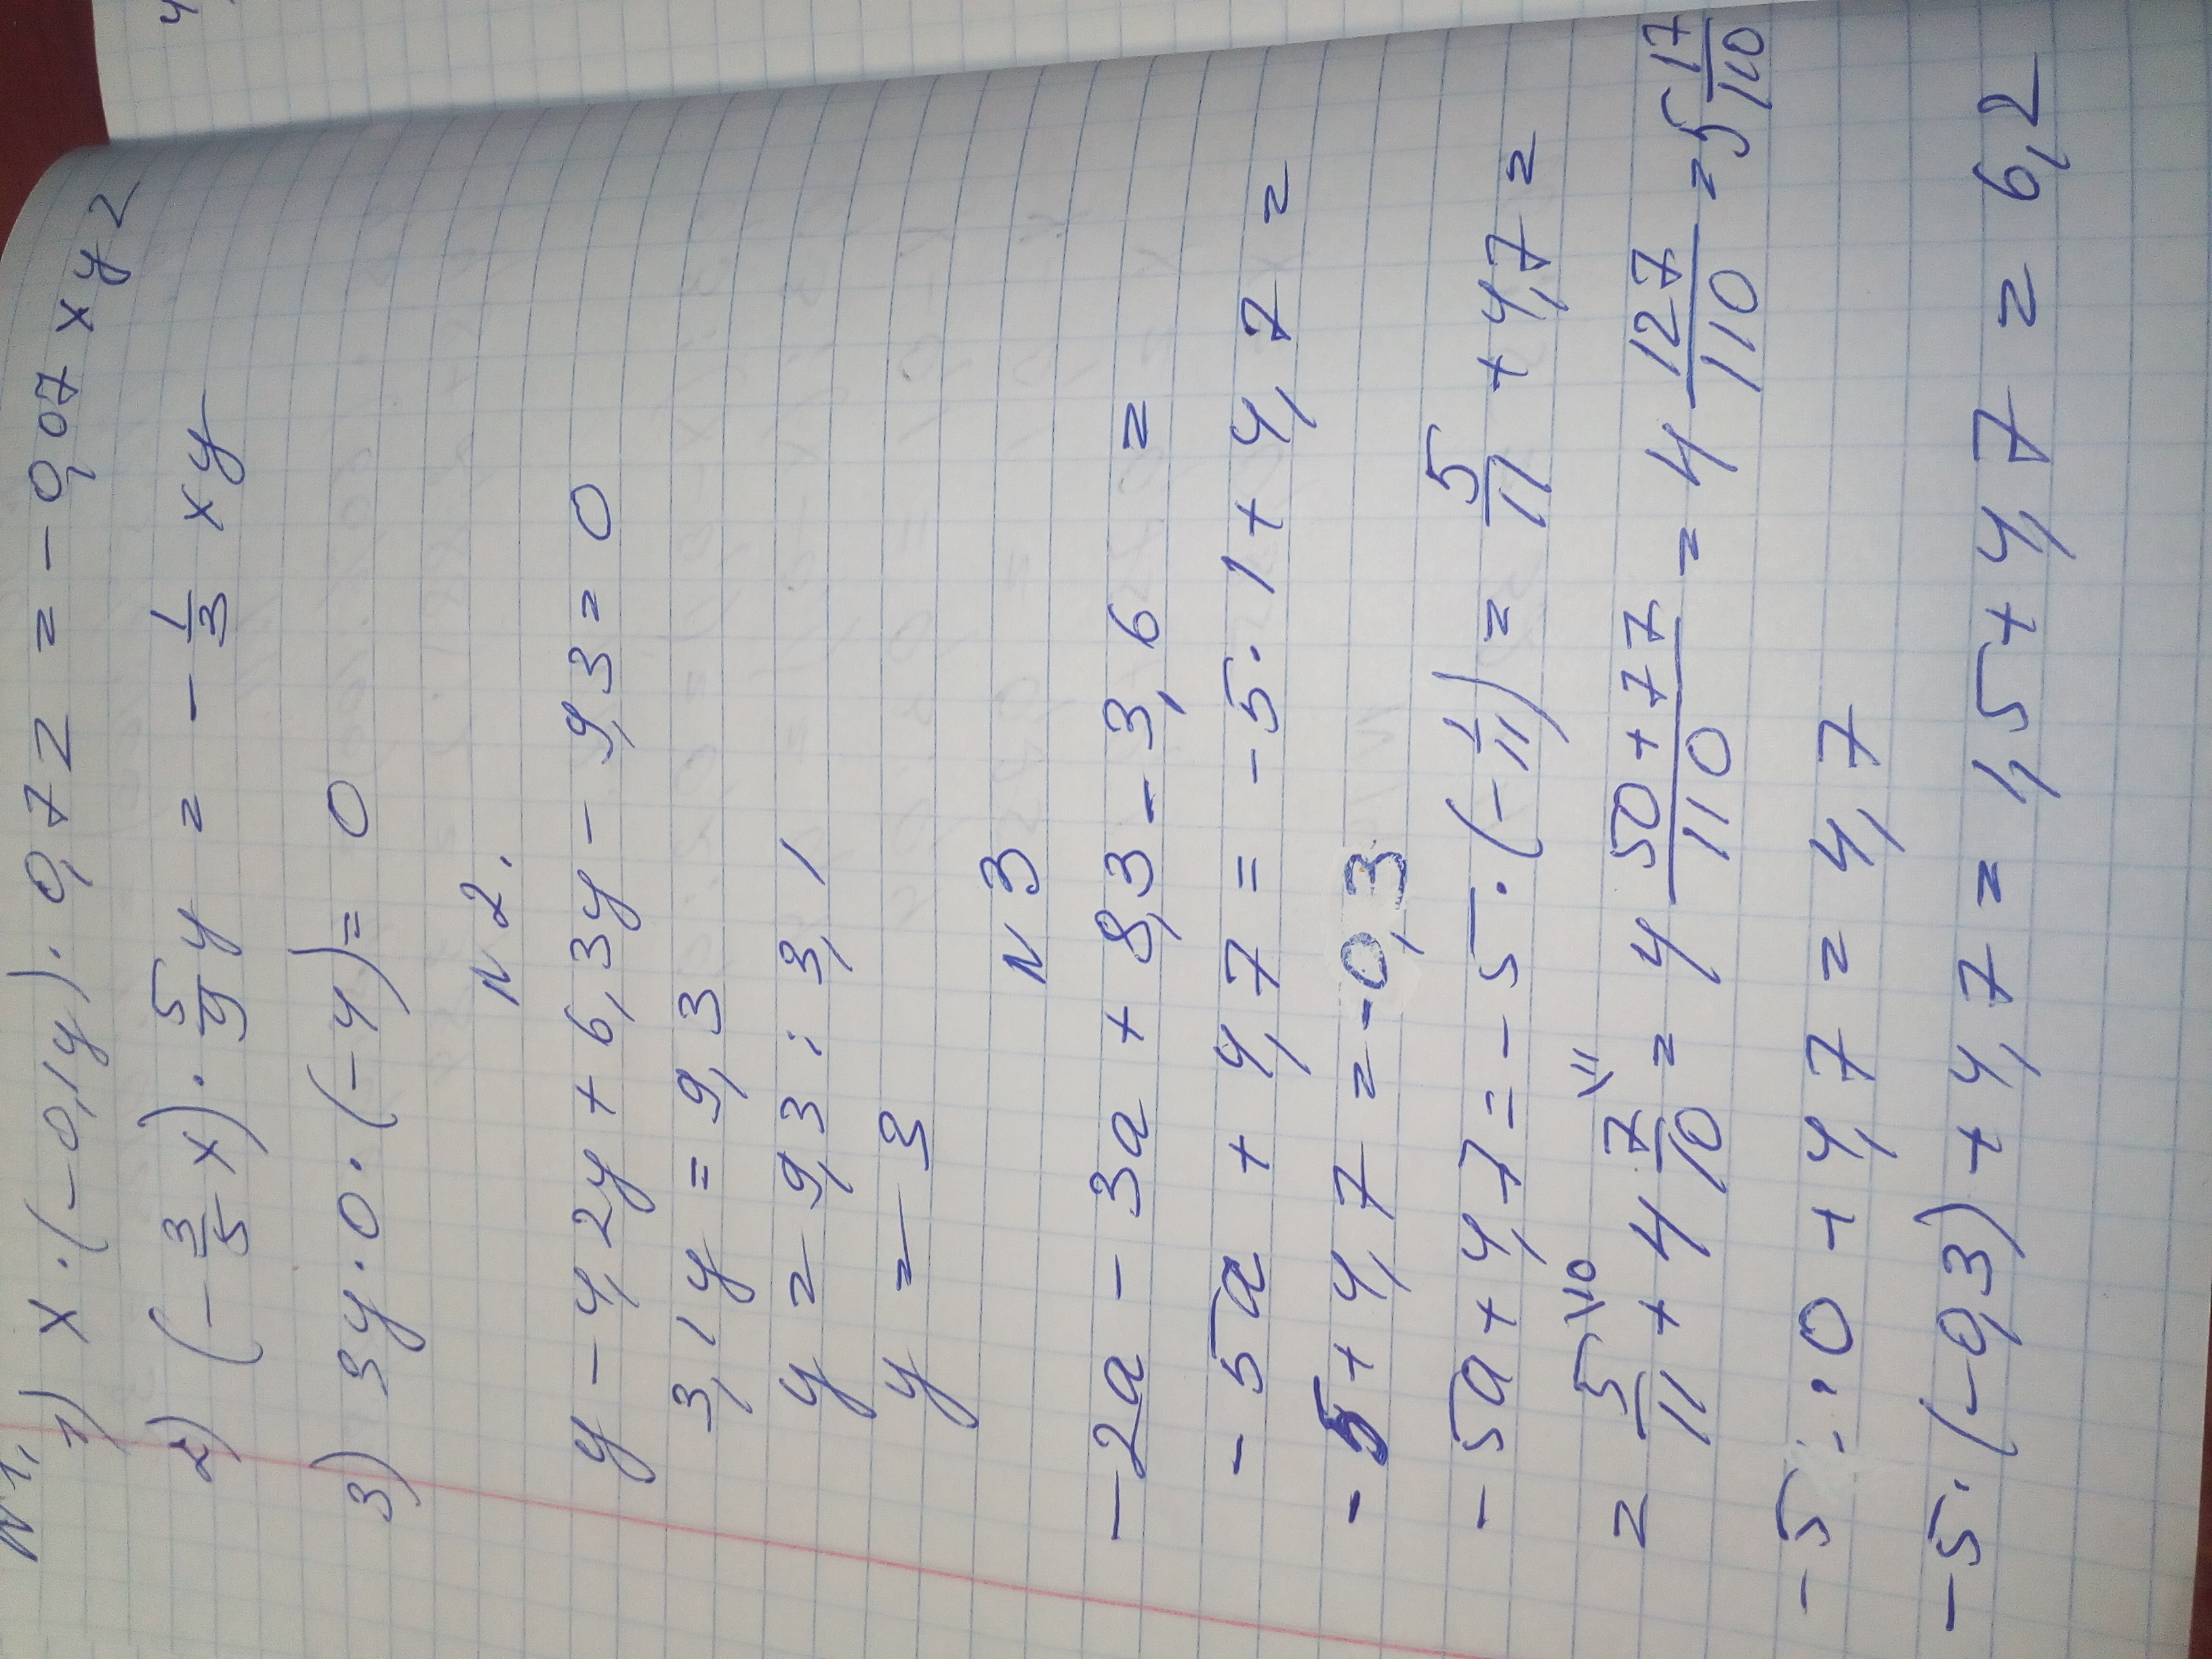 N 1.
1) x · (-0,1y) · 0,7z = -0,07xyz
2) (-3/5 x) · 5/9 y = -1/3 xy
3) 9y · 0 · (-4) = 0
N 2.
y - 4,2y + 6,3y - 9,3 = 0
3,1y = 9,3
y = 9,3 : 3,1
y = 3
N 3
-2a - 3a + 8,3 - 3,6 =
-5a + 4,7 = -5 · 1 + 4,7 =
-5 + 4,7 = -0,3
-5a + 4,7 = -5 · (-1/11) = 5/11 + 4,7 =
= 5/11 \10 + 4 7/10 \11 = 4 50+77/110 = 4 127/110 = 5 17/110
-5 · 0 + 4,7 = 4,7
-5 · (-0,3) + 4,7 = 1,5 + 4,7 = 6,2